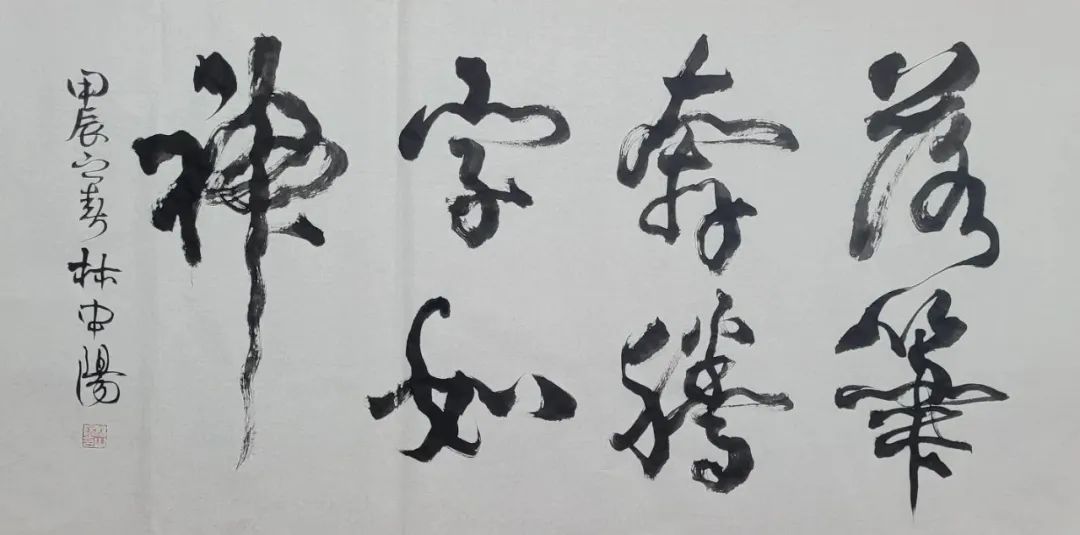 落筆
奔騰
字如
神
甲辰之春 林中陽